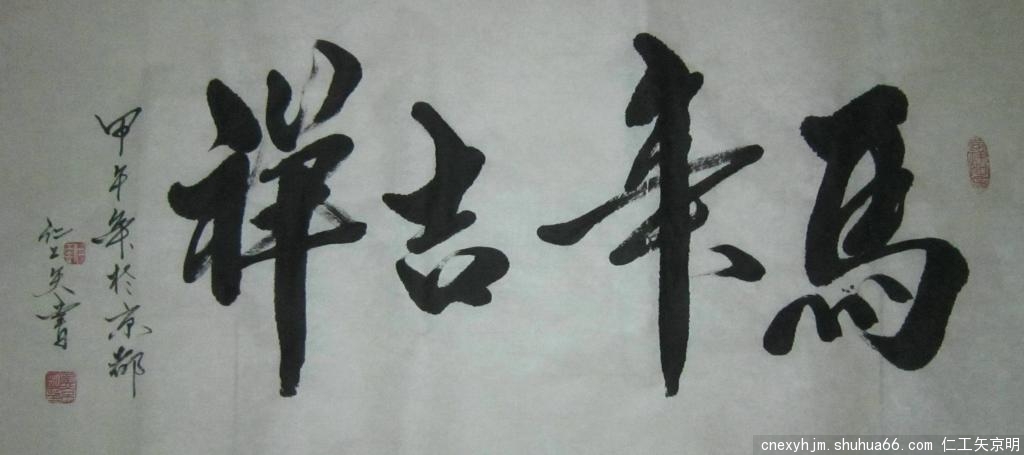 馬年吉祥
甲午年於京都
仁工矢書
cnexyhjm.shuhua66.com 仁工矢京明